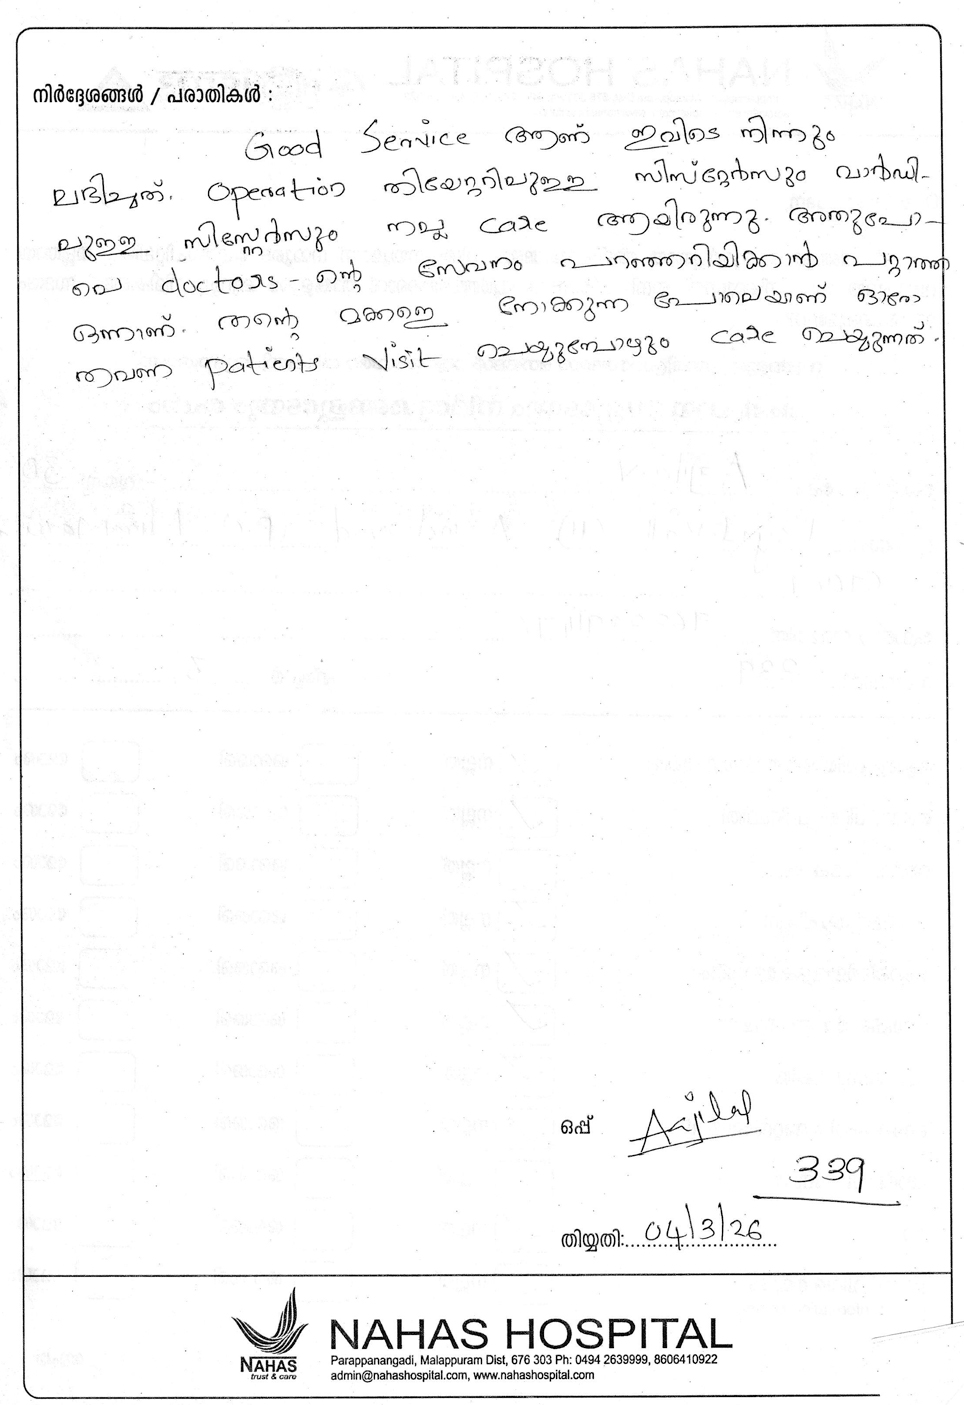 നിർദ്ദേശങ്ങൾ / പരാതികൾ :
Good Service ആണ് ഇവിടെ നിന്നും
ലഭിച്ചത്. Operation തിയേറ്ററിലുള്ള സിസ്റ്റേർസും വാർഡി-
ലുള്ള സിസ്റ്റേർസും നല്ല care ആയിരുന്നു. അതുപോ-
ലെ doctors ന്റെ സേവനം പറഞ്ഞറിയിക്കാൻ പറ്റാത്ത
ഒന്നാണ്. തന്റെ മക്കളെ നോക്കുന്ന പോലെയാണ് ഓരോ
തവണ patients visit ചെയ്യുമ്പോഴും care ചെയ്യുന്നത്.
ഒപ്പ് Anjilal
339
തിയ്യതി: 04/3/26
NAHAS
trust & care
NAHAS HOSPITAL
Parappanangadi, Malappuram Dist, 676 303 Ph: 0494 2639999, 8606410922
admin@nahashospital.com, www.nahashospital.com